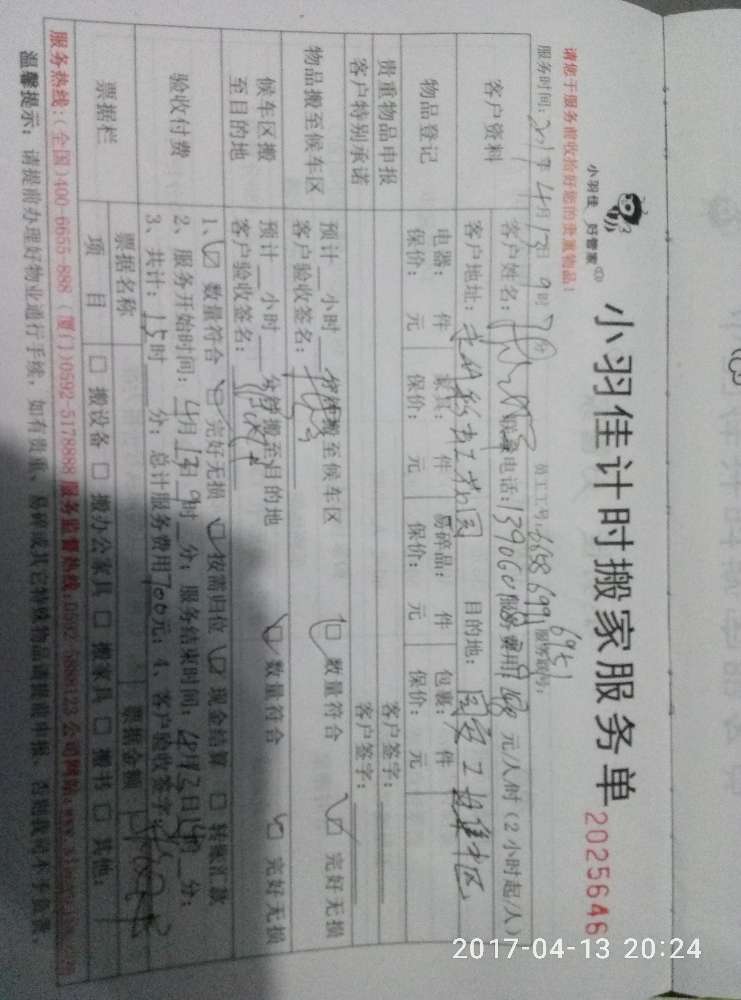 小羽佳计时搬家服务单
2025646
小羽佳 好管家
请您于服务前收拾好您的贵重物品！
服务时间：2017年4月13日9时 分 员工工号：6658 6991 6951 服务联号：
客户资料
客户姓名： 联系电话： 服务费用：168元/人/时（2小时起/人）
客户地址： 目的地：
物品登记
电器： 件 家具： 件 易碎品： 件 包裹： 件
保价： 元 保价： 元 保价： 元 保价： 元
贵重物品申报 客户签字：
客户特别承诺 客户签字：
物品搬至候车区
预计 小时 分钟搬至候车区 □ 数量符合 □ 完好无损
客户验收签名：
候车区搬至目的地
预计 小时 分钟搬至目的地 □ 数量符合 □ 完好无损
客户验收签名：
验收付费
1、□ 数量符合 □ 完好无损 □ 按需归位 □ 现金结算 □ 转账汇款
2、服务开始时间：4月13日9时 分；服务结束时间：4月 日 时 分；
3、共计：1.5时 分；总计服务费用700元；4、客户验收签字：
票据栏
票据名称 票据金额
项目 □ 搬设备 □ 搬办公家具 □ 搬家具 □ 搬书 □ 其他：
服务热线：（全国）400-6655-888 （厦门）0592-5178888 服务监督热线：0592-5888123 公司网站：
温馨提示：请提前办理好物业通行手续，如有贵重、易碎或其它特殊物品请提前申报，否则我司不予负责。
2017-04-13 20:24